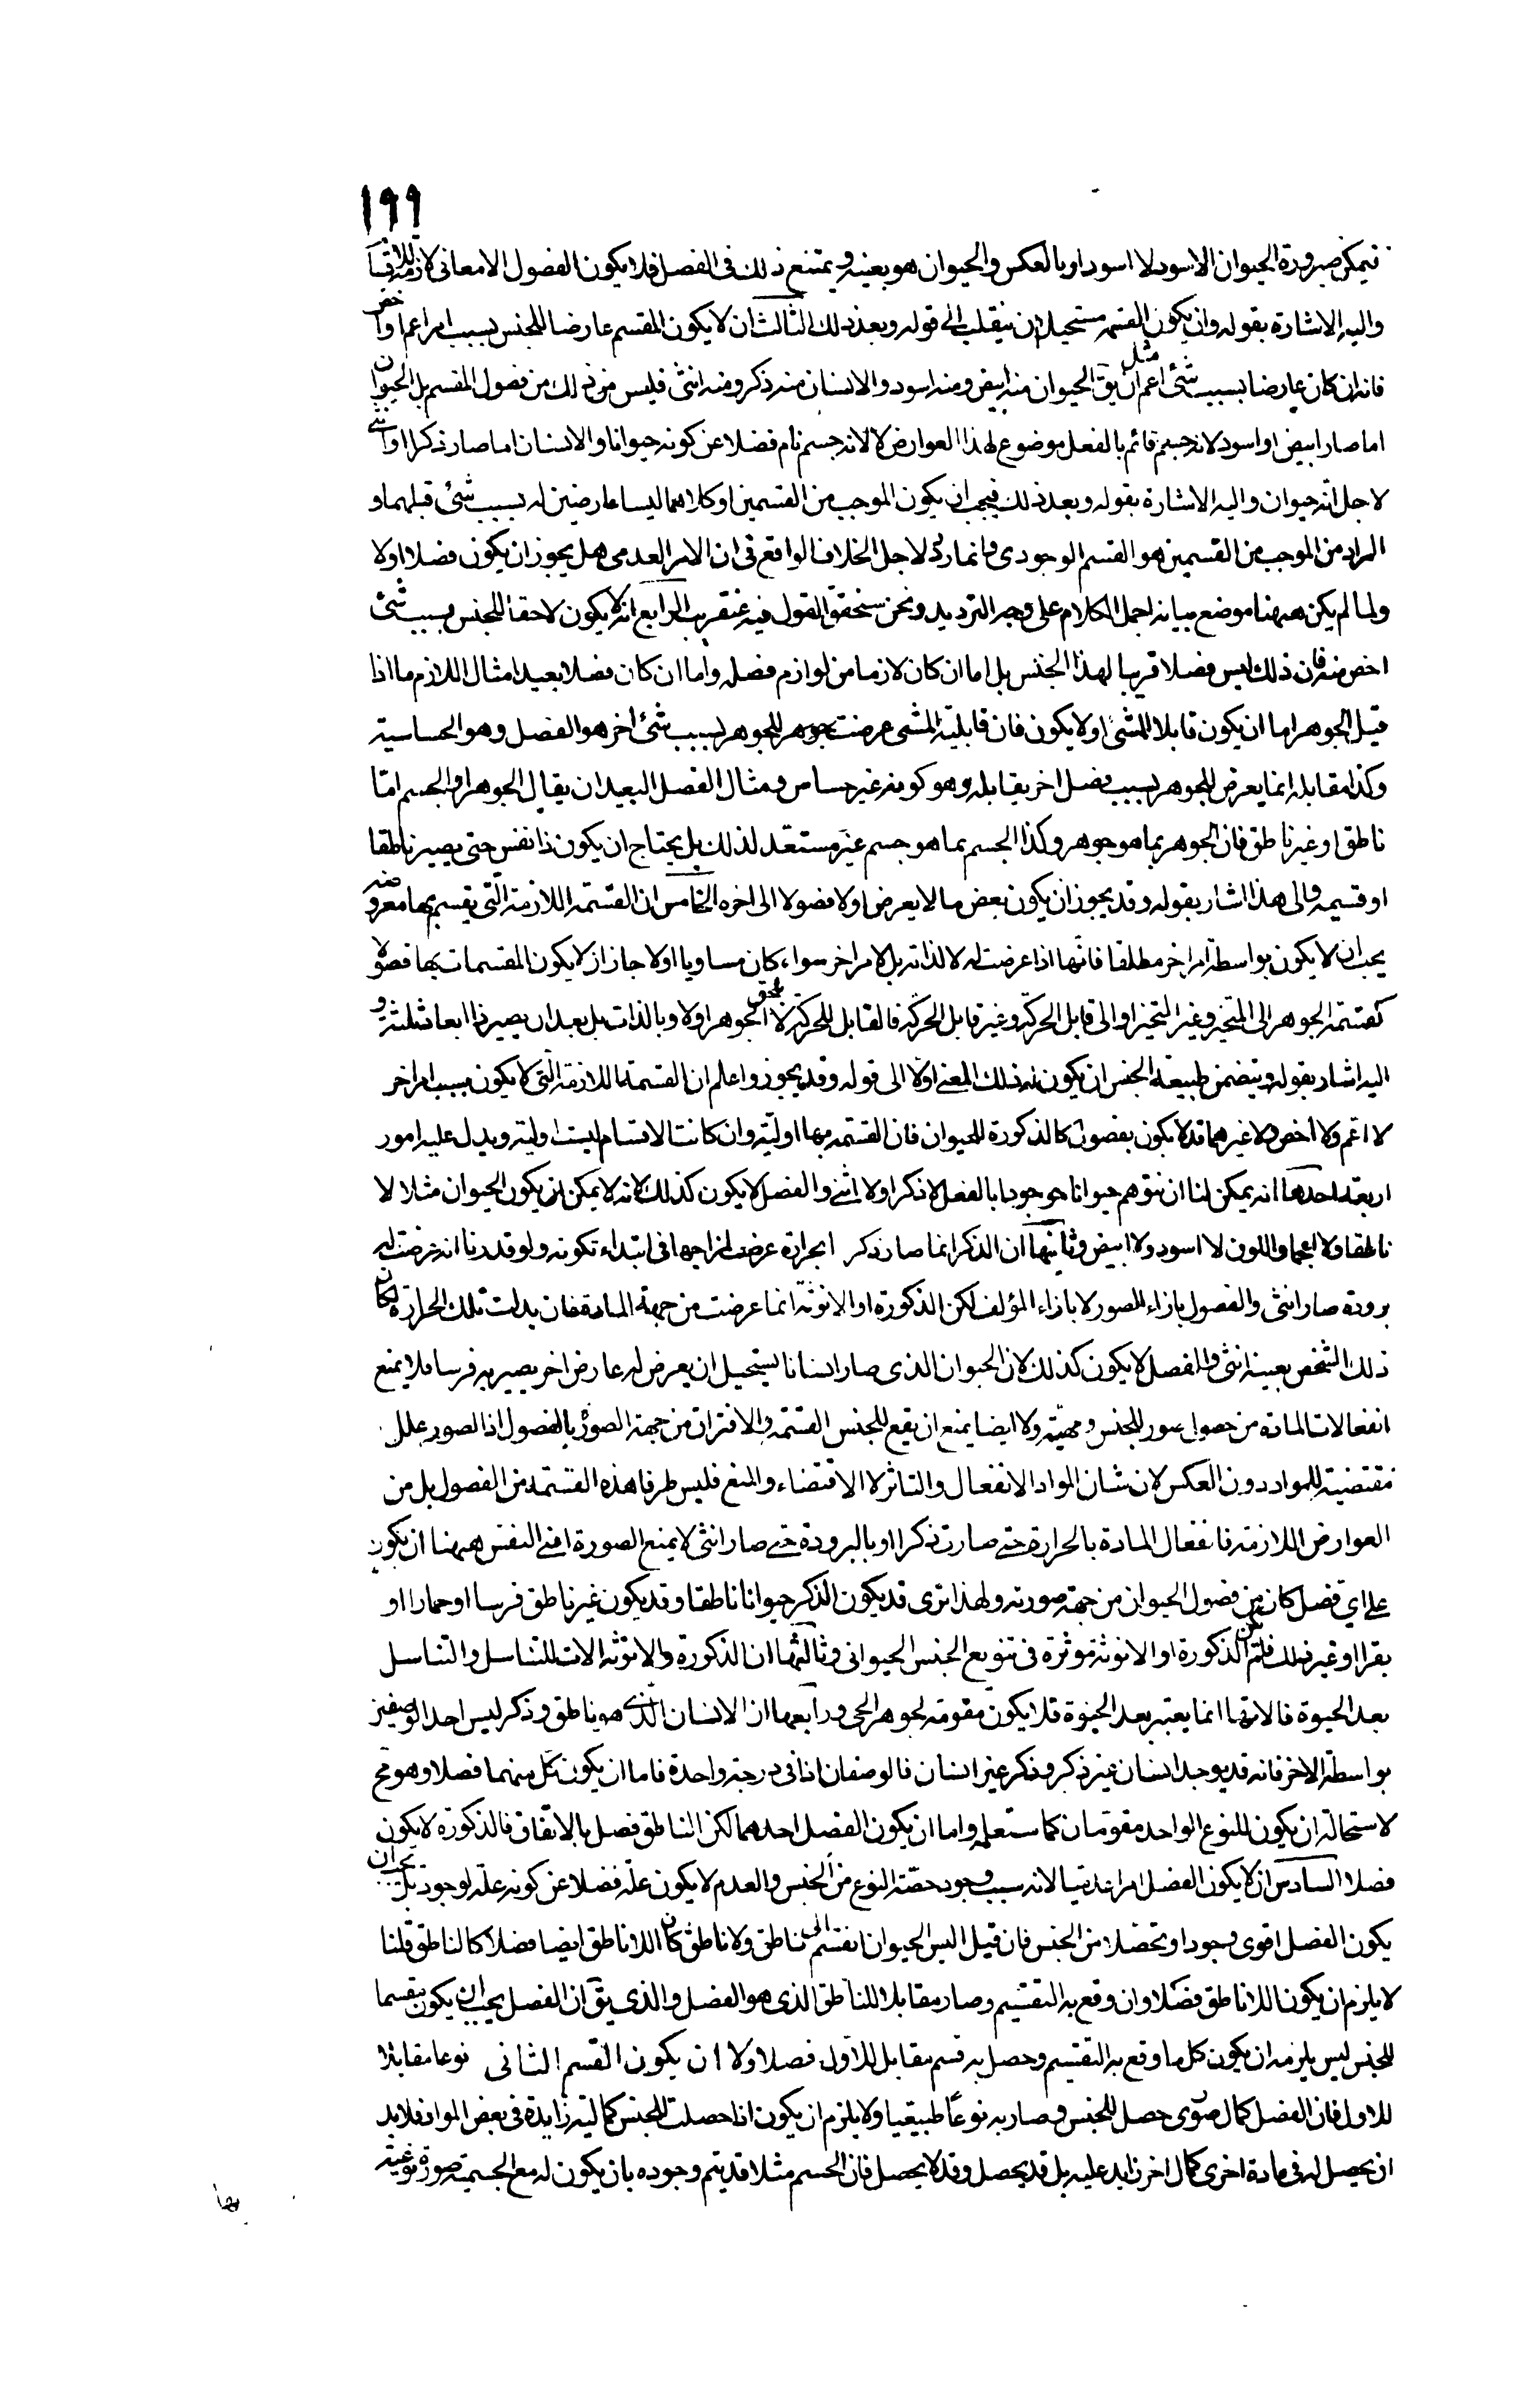 ١٩٩
فيمكن صيرورة الحيوان الاسود لا اسود او بالعكس والحيوان هو بعينه ويمتنع ذلك فى الفصل فلا يكون الفصول الا معانى لازمة للاقسا
واليه الاشارة بقوله وان يكون القسمه مستحيلا ان ينقلب الى قوله وبعد ذلك الثالث ان لا يكون المقسم عارضا للجنس بسبب امر اعم او اخص
فانه ان كان عارضا بسبب شئ اعم مثل ان يق الحيوان منه ابيض ومنه اسود والانسان منه ذكر ومنه انثى فليس من ذلك من فصول المقسم بل الحيوان
اما صار ابيض او اسود لانه جسم قائم بالفعل موضوع لهذا العوارض لا لانه جسم نام فضلا عن كونه حيوانا والانسان اما صار ذكرا او انثى
لاجل انه حيوان واليه الاشارة بقوله وبعد ذلك فيجب ان يكون الموجب من القسمين او كلاهما ليسا عارضين له بسبب شئ قبلهما و
المراد من الموجب من القسمين هو القسم الوجودى وانما ردد لاجل الخلاف الواقع فى ان الامر العدمى هل يجوز ان يكون فصلا او لا
ولما لم يكن ههنا موضع بيانه اجمل الكلام على وجه الترديد ونحن سنحقق القول فيه عنقريب الرابع انه لا يكون لاحقا للجنس بسبب شئ
اخص منه فان ذلك ليس فصلا قريبا لهذا الجنس بل اما ان كان لازما من لوازم فصله واما ان كان فصلا بعيدا مثال اللازم ما اذا
قيل الجوهر اما ان يكون قابلا للمشى او لا يكون فان قابلية المشى عرضت جوهر للجوهر بسبب شئ اخر هو الفصل وهو الحساسية
وكذا مقابله انما يعرض للجوهر بسبب فصل اخر يقابله وهو كونه غير حساس ومثال الفصل البعيد ان يقال الجوهر او الجسم امّا
ناطق او غير ناطق فان الجوهر بما هو جوهر وكذا الجسم بما هو جسم غير مستعّد لذلك بل يحتاج ان يكون ذا نفس حتى يصير ناطقا
او قسيمه والى هذا اشار بقوله وقد يجوز ان يكون بعض ما لا يعرض اولا فصولا الى اخره الخامس ان القسمه اللازمة التى يقسم بها معروضه
يجب ان لا يكون بواسطة امر اخر مطلقا فانّها اذا عرضت له لا لذاته بل لامر اخر سواء كان مساويا او لا جاز ان لا يكون المقسمات بها فصولا
كقسمة الجوهر الى المتحيز وغير المتحيز او الى قابل الحركة وغير قابل الحركة فالقابل للحركة لا يلحق الجوهر اولا وبالذات بل بعد ان يصير ذا ابعاد ثلثة و
اليه اشار بقوله ويتضمن طبيعة الجنس ان يكون له ذلك المعنى اوّلا الى قوله وقد يجوز واعلم ان القسمة اللازمة التى لا يكون بسبب امر اخر
لا اعم ولا اخص ولا غيرهما قد لا يكون بفصول كالذكورة للحيوان فان القسمه بها اوليّة وان كانت الاقسام ليست اولية ويدل عليه امور
اربعة احدها انه يمكن لنا ان نتوهم حيوانا موجودا بالفعل لا ذكرا ولا انثى والفصل لا يكون كذلك لانه لا يمكن ان يكون الحيوان مثلا لا
ناطقا ولا اعجما واللون لا اسود ولا ابيض وثانيها ان الذكر انما صار ذكر ا بحرارة عرضت لمزاجها فى ابتداء تكونه ولو قدرنا انه عرضت له
برودة صار انثى والفصول بازاء الصور لا بازاء المؤلف لكن الذكورة او الانوثة انما عرضت من جهة المادة فان بدلت تلك الحرارة لكان
ذلك الشخص بعينه انثى والفصل لا يكون كذلك لان الحيوان الذى صار انسانا يستحيل ان يعرض له عارض اخر يصير به فرسا فلا يمنع
انفعالات المادة من حصول صور للجنس ومهيّته ولا ايضا يمنع ان يقع للجنس القسمة والافتراق من جهة الصورة بالفصول اذ الصور علل
مقتضية للمواد دون العكس لان شان المواد الانفعال والتاثر لا الاقتضاء والمنع فليس طرفا هذه القسمة من الفصول بل من
العوارض اللازمة فانفعال المادة بالحرارة حتى صارت ذكرا او بالبرودة حتى صار انثى لا يمنع الصورة اعنى النفس ههنا ان يكون
على اى فصل كان من فصول الحيوان من جهة صورته ولهذا ترى قد يكون الذكر حيوانا ناطقا وقد يكون غير ناطق فرسا او حمارا او
بقرا او غير ذلك فلم تكن الذكورة او الانوثة موثرة فى تنويع الجنس الحيوانى وثالثها ان الذكورة والانوثة الات للتناسل والتناسل
بعد الحيوة فالاتها انما يعتبر بعد الحيوة فلا يكون مقومة لجوهر الحى ورابعها ان الانسان الذى هو ناطق وذكر ليس احد الوصفين
بواسطة الاخر فانه قد يوجد انسان غير ذكر وذكر غير انسان فالوصفان اذا فى درجة واحدة فاما ان يكون كل منهما فصلا وهو مح
لاستحالة ان يكون للنوع الواحد مقومان كما ستعلمه واما ان يكون الفصل احدهما لكن الناطق فصل بالاتفاق فالذكورة لا يكون
فصلا السادس ان لا يكون الفصل امرا عدميا لانه سبب وجود حصّة النوع من الجنس والعدم لا يكون علّة فضلا عن كونه علة لوجود بل يجب ان
يكون الفصل اقوى وجودا وتحصّلا من الجنس فان قيل اليس الحيوان انقسم الى ناطق ولا ناطق كان اللا ناطق ايضا فصلا كالناطق قلنا
لا يلزم ان يكون اللا ناطق فصلا وان وقع به التقسيم وصار مقابلا للناطق الذى هو الفصل والذى يق ان الفصل يجب ان يكون مقسما
للجنس ليس يلزمه ان يكون كل ما وقع به التقسيم وحصل به قسم مقابل للاول فصلا ولا ان يكون القسم الثانى نوعا مقابلا
للاول فان الفصل كمال صورى حصل للجنس وصار به نوعا طبيعيا ولا يلزم ان يكون اذا حصلت للجنس كمالية زايدة فى بعض المواد فلابد
ان يحصل له فى مادة اخرى كمال اخر زايد عليه بل قد يحصل وقد لا يحصل فان الجسم مثلا قد يتم وجوده بان يكون له مع الجسمية صورة نوعية
بها